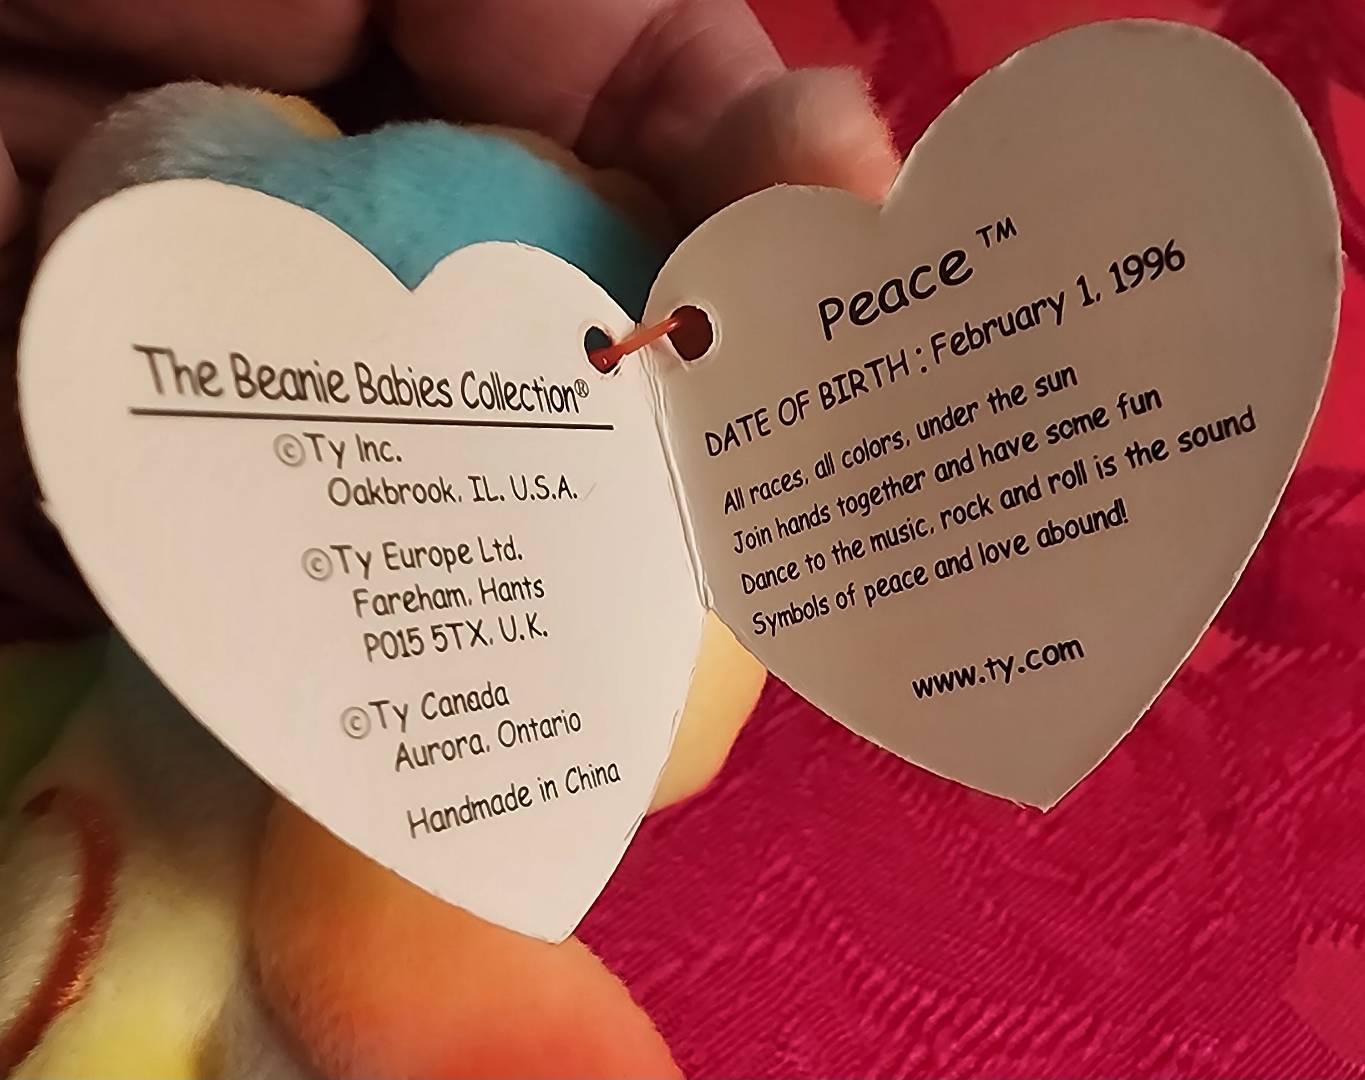 The Beanie Babies Collection®
©Ty Inc.
Oakbrook, IL, U.S.A.
©Ty Europe Ltd.
Fareham, Hants
PO15 5TX, U.K.
©Ty Canada
Aurora, Ontario
Handmade in China
Peace™
DATE OF BIRTH : February 1, 1996
All races, all colors, under the sun
Join hands together and have some fun
Dance to the music, rock and roll is the sound
Symbols of peace and love abound!
www.ty.com